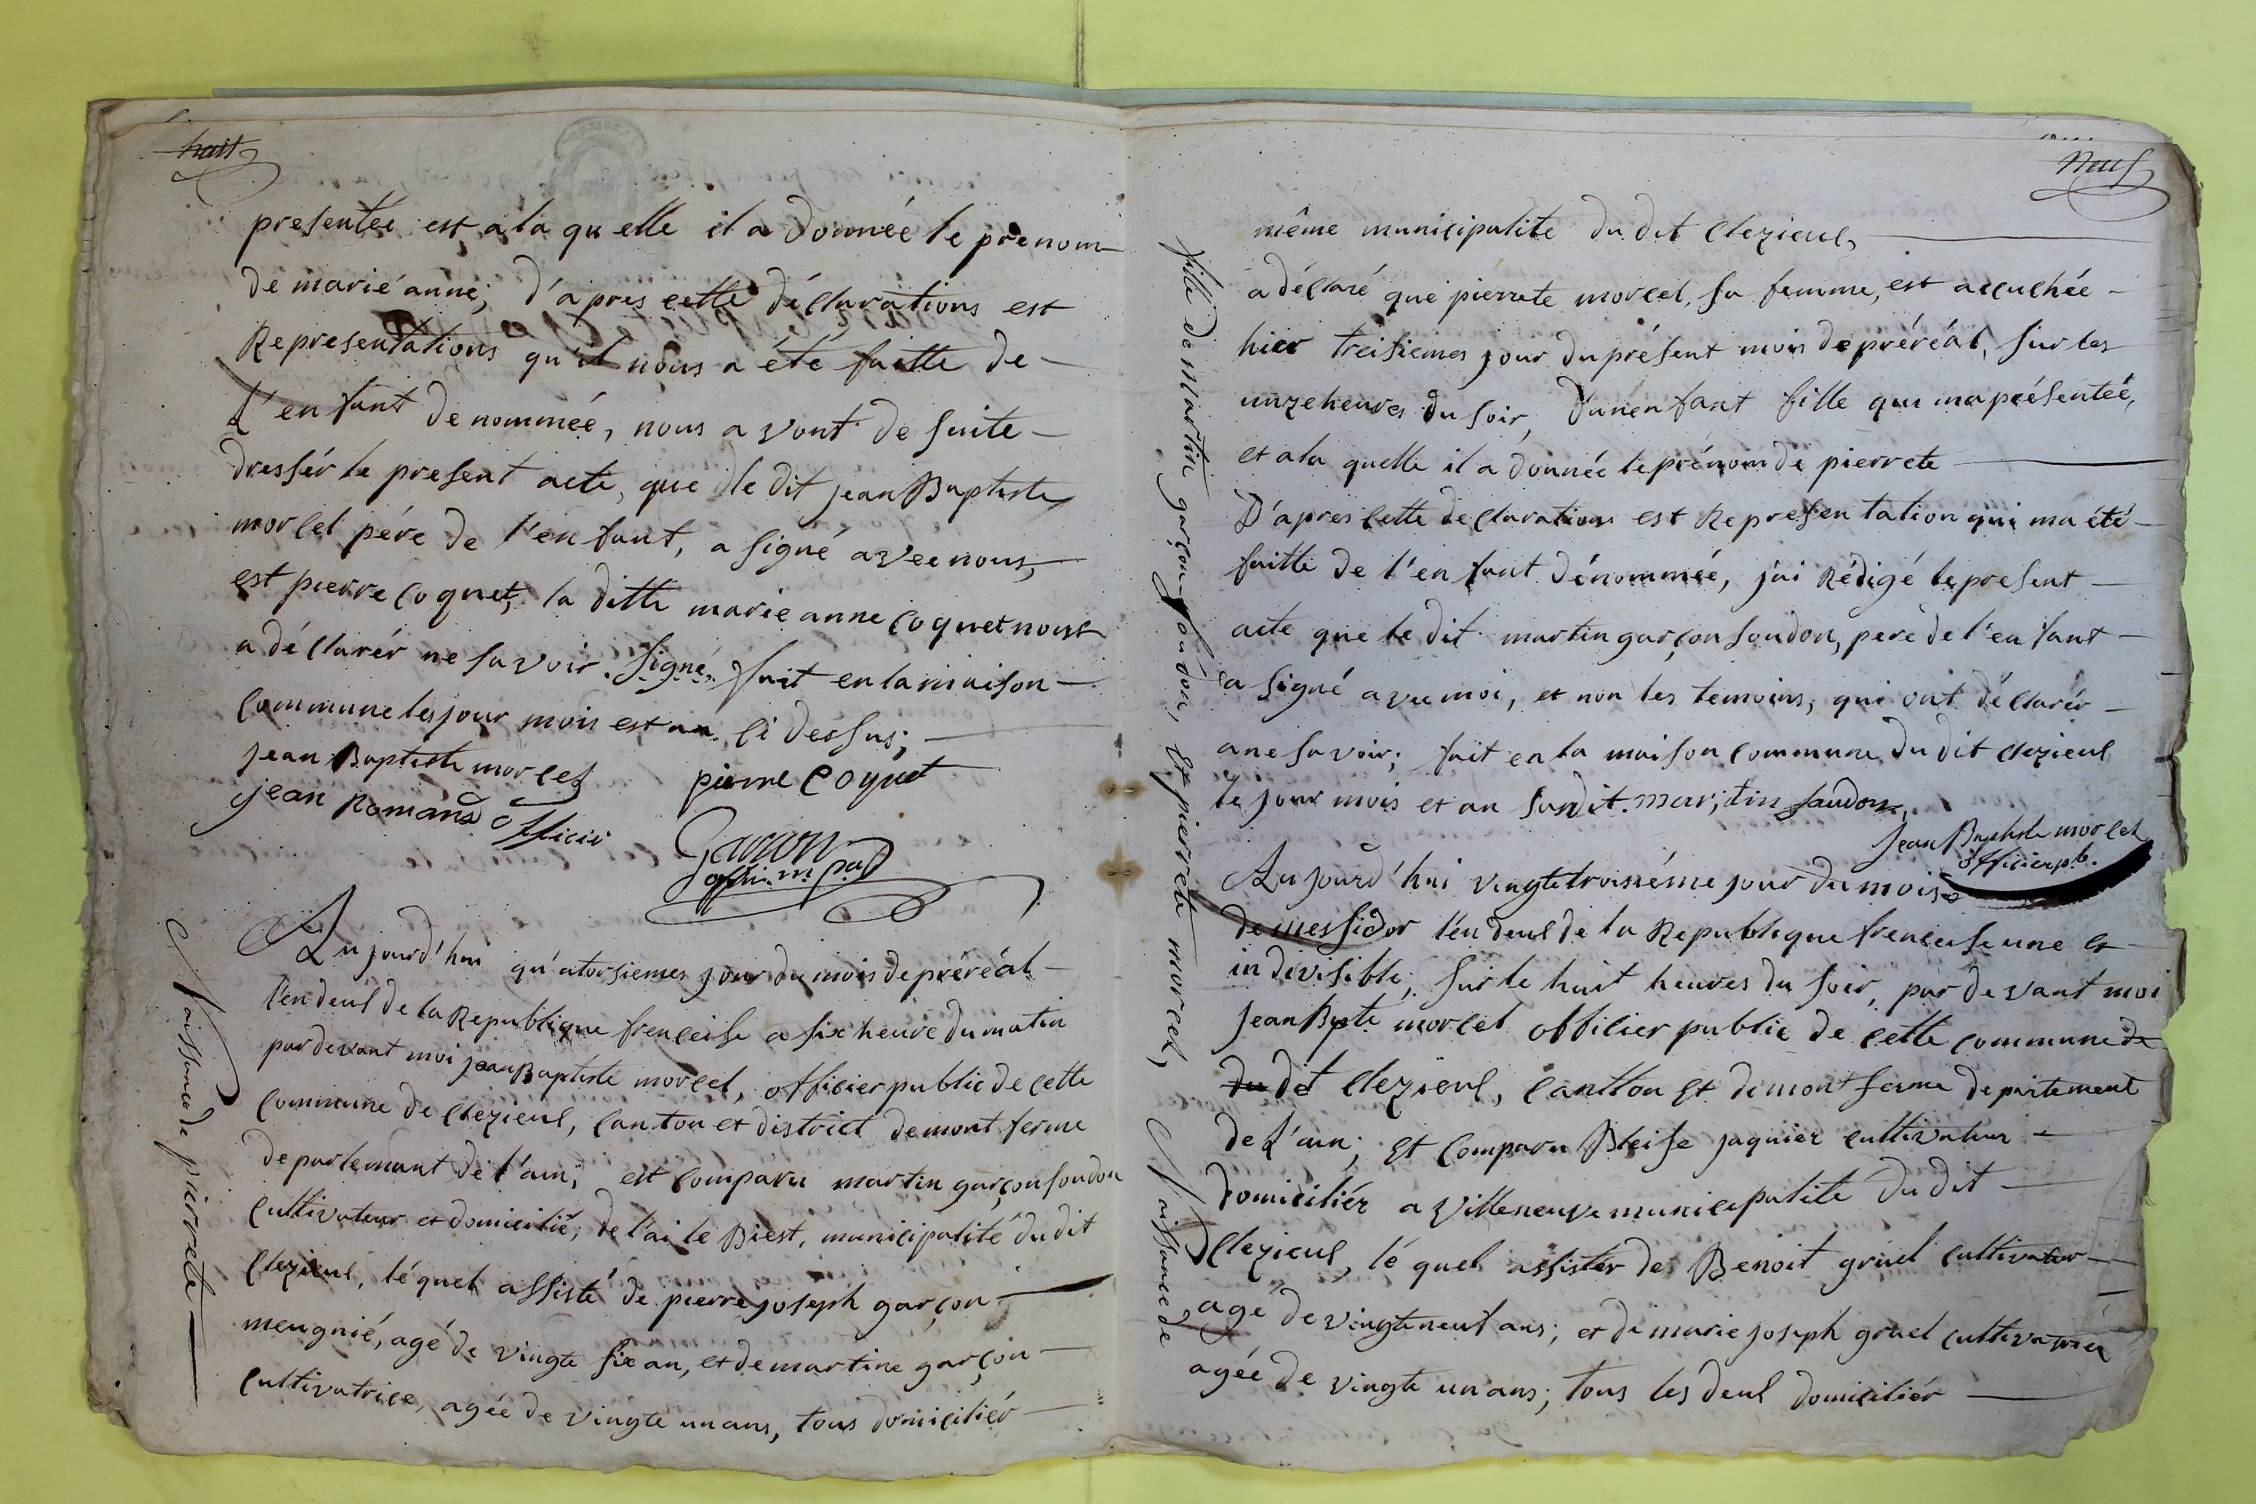 huit
presentéé est a la qu elle il a donnéé le prenom
de marie anne; d'apres cette déclarations est
Representations qu'il nous a été faitte de
L'enfant denomméé, nous avont de suite
dressér le present acte, que le dit jean Baptiste
morlet pére de l'enfant, a signé avec nous,
est pierre Coquet, la ditte marie anne Coquet nous
a déclarér ne savoir signé, fait en la maison
Commune les jour mois est an ci dessus;
Jean Baptiste morlet pierre Coquet
jean Romand officié
Naissance de pierrete
Aujourd'hui qu'atorsiemes jour du mois de préréal
l'en deul de la Republique frenceise a six heure du matin
pardevant moi jean Baptiste morcel, officier public de cette
Commune de Clezieul, Canton et district de mont ferme
departemant de l'ain; est comparu martin garçon foudon
Cultivateur et domicilié, de l'ai le Biest, municipalité du dit
Clezieul, léquel assisté de pierre joseph garçon
meugnié, agé de vingte six an, et de martine garçon
Cultivatrice, agéé de vingte un ans, tous domiciliér
Neuf
fille de martin garçon foudon, et pierrete morcel,
même municipalite du dit Clezieul,
a déclaré que pierrete morcel, sa femme, est accuchée
hier treisiemes jour du présent mois de préréal, sur les
unze heures du soir, d'un enfant fille qui ma présentéé,
et a la quelle il a donnéé le prénom de pierrete
D'apres cette declarations est Representation qui ma été
faitte de l'enfant dénomméé, j'ai Rédigé le present
acte que le dit martin garçon foudon, pere de l'enfant
a signé avec moi, et non les temoins, qui ont déclarér
a ne savoir; fait en la maison Commune du dit Clezieul
le jour mois et an susdit. martin faudon,
Jean Baptiste morcel
officier pb.
Naissance de
Aujourd'hui vingte troisiéme jour du mois
de messidor l'en deul de la Republique frenceise une et
indivisible, sur le huit heures du soir, par devant moi
Jean Bpte morcel officier public de cette Commune de
du dit Clezieul, Cantton et de mont ferme departement
de L'ain; et Comparu Bleise jaquier cultivateur
domiciliér a villeneuve municipalite du dit
Clezieul, léquel assistér de Benoit gruel Cultivateur
agé de vingte neuf ans; et de marie joseph gruel
agéé de vingte un ans; tous les deul domiciliér